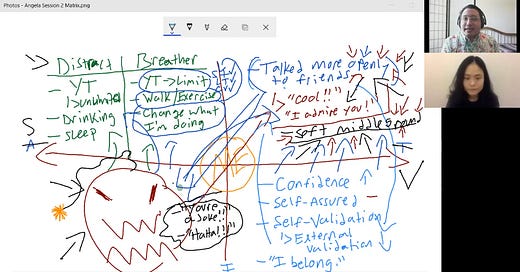 Photos - Angela Session 2 Matrix.png
Distract
- YT
↳unlimited
- Drinking
- Sleep
Breather
YT → Limit
Walk/Exercise
Change what
I'm doing
Talked more openl
to friends
↳ "Cool!!"
"I admire you!"
= Soft middle ground
S
A
ME
- Confidence ↑
- Self-Assured -
- Self-Validation
↳ External
validation ↓
- "I belong."
- "You're
a Joke!!"
- "Haha!!"
I